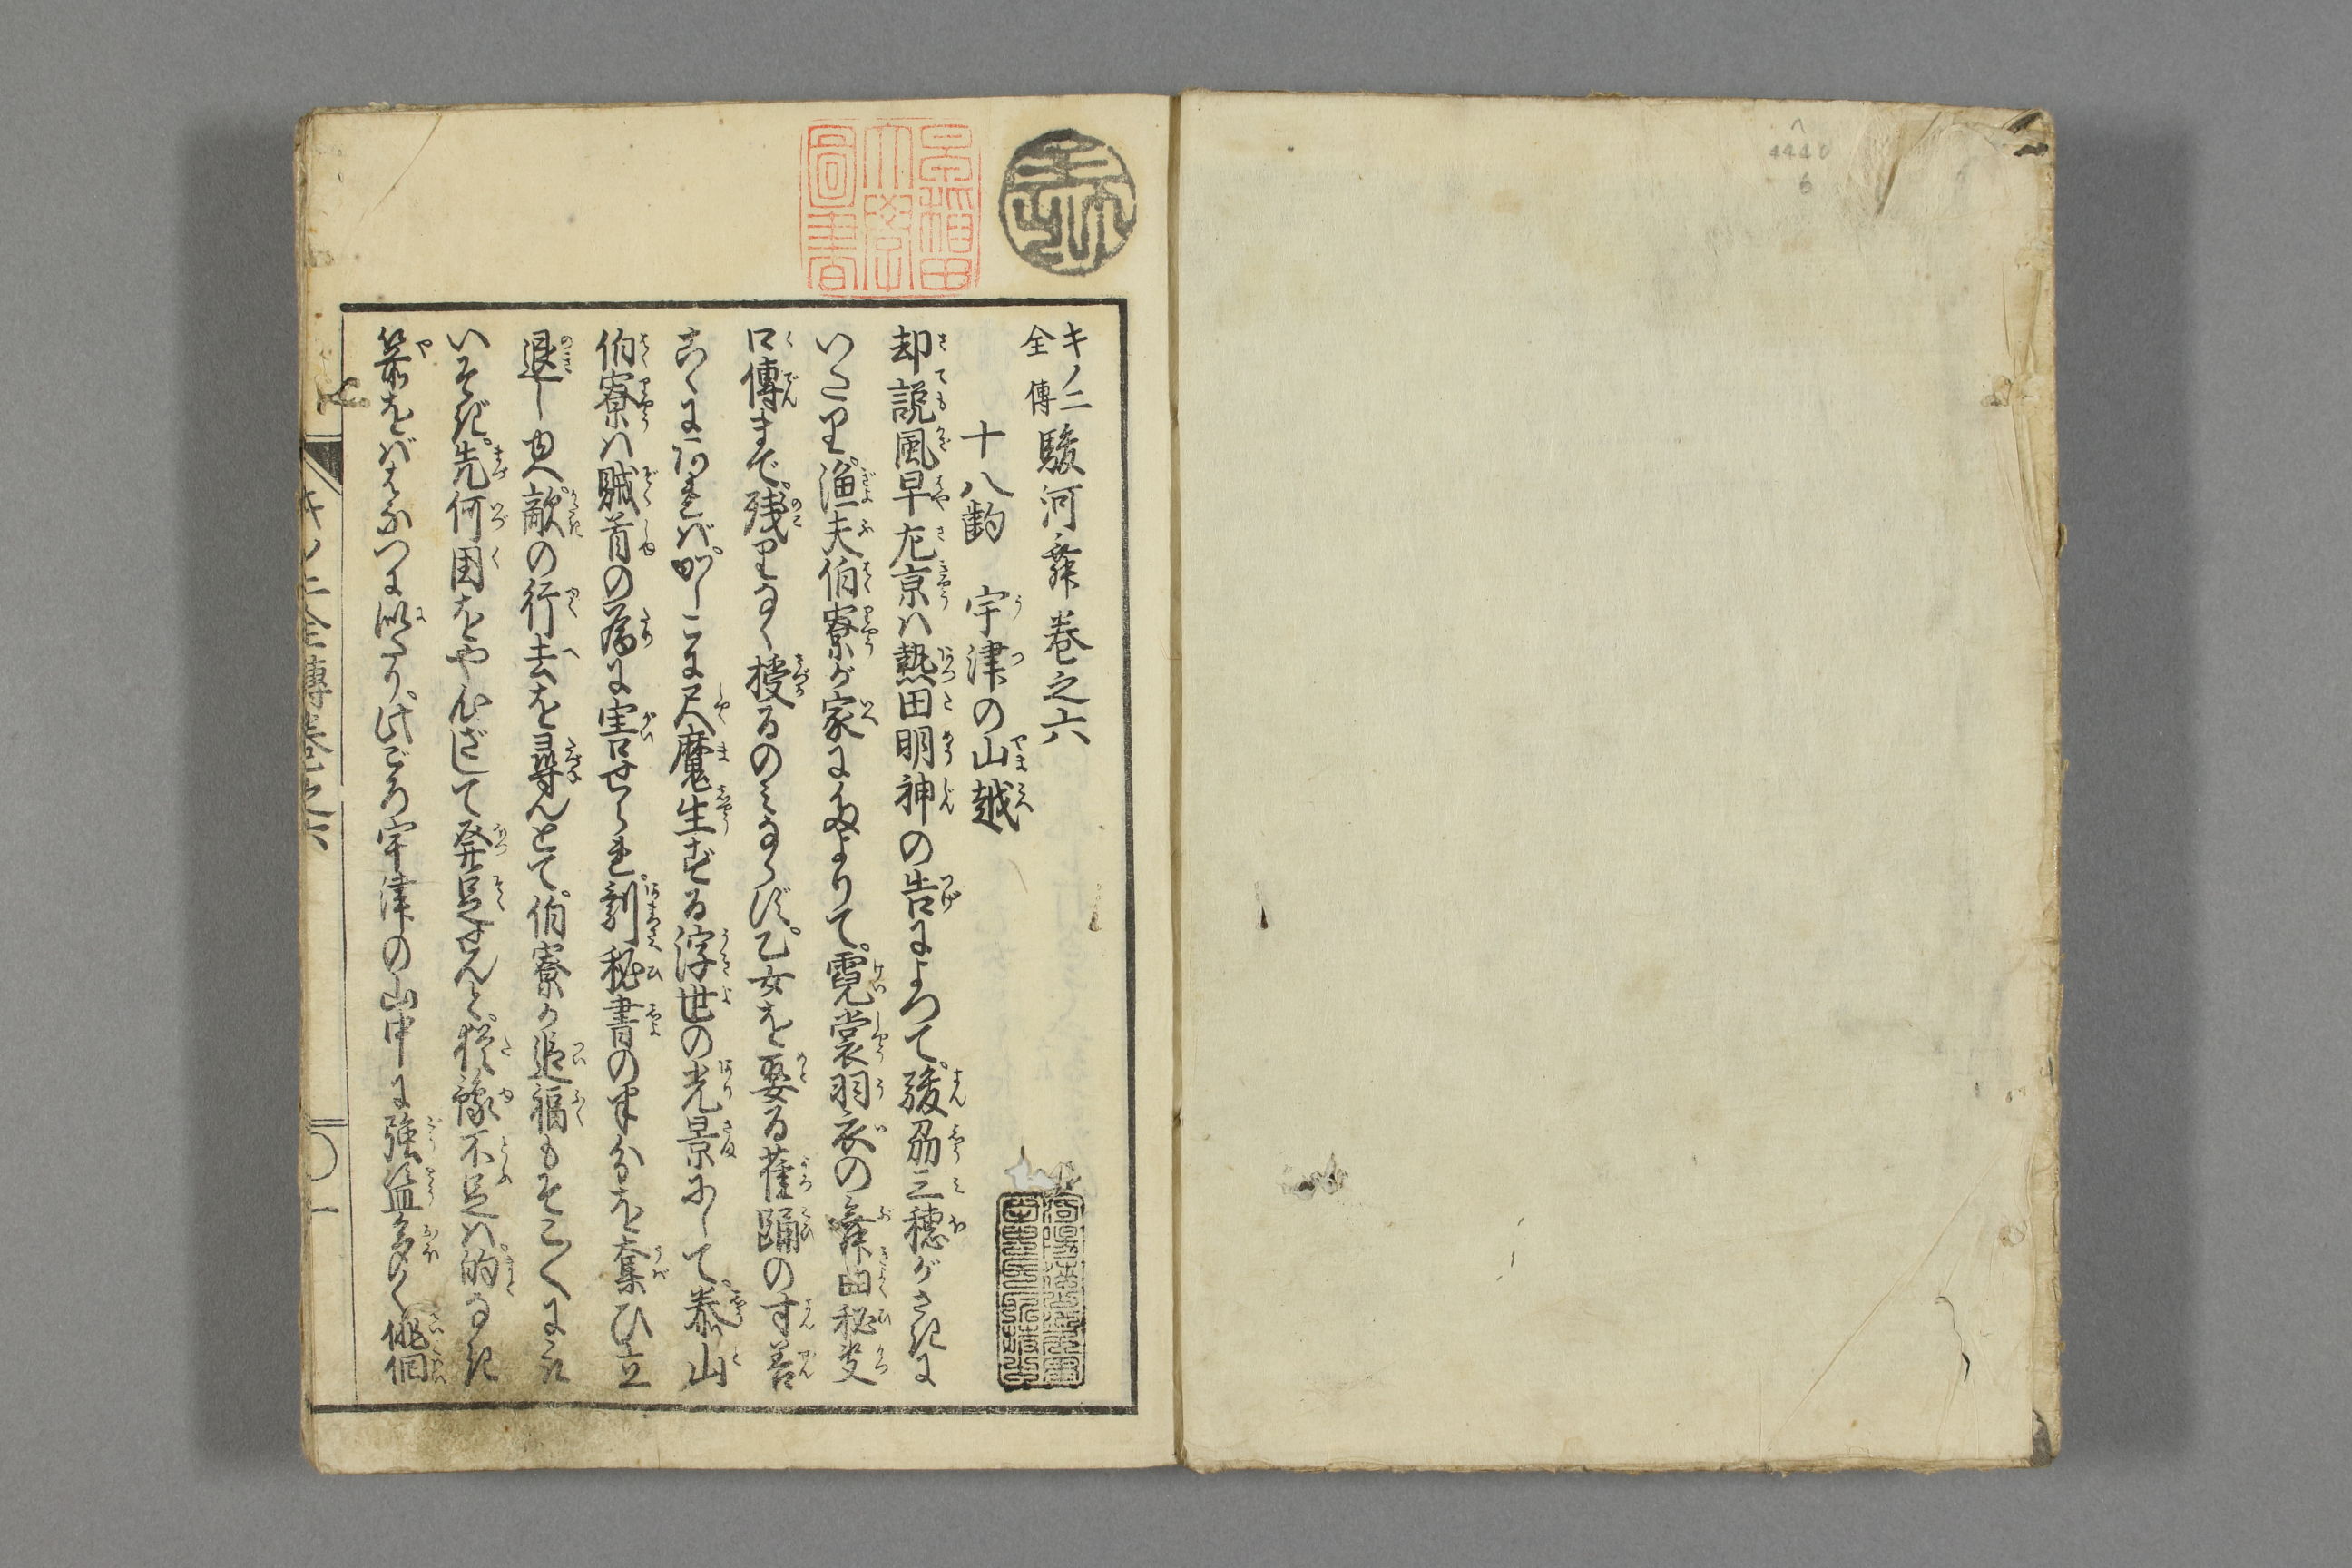 キノ二
全傳
駿河舞巻之六
十八齣 宇津の山越
却説風早左京ハ熱田明神の告によつて。駿州三穂がさきに
いたり。漁夫伯寮が家にたよりて。霓裳羽衣の舞曲秘曼
口傳まで。残りなく授るのみならず。乙女を娶る雀踊の
こゝにあれバかしこに尺魔生ずる浮世の光景にして。泰山
伯寮ハ賊首の為に害せられ。剰秘書の半分を奪ひ立
退しゆへ。敵の行去を尋んとて。伯寮が追福もそこ〳〵に
いそぎ。先何国をや心ざして発足せんと。猶豫不足ハ的なき
箭をばはなつに似たり。此ごろ宇津の山中に強盗多く俳徊
キノ二全傳巻之六
〇一
早稲田
大學
圖書